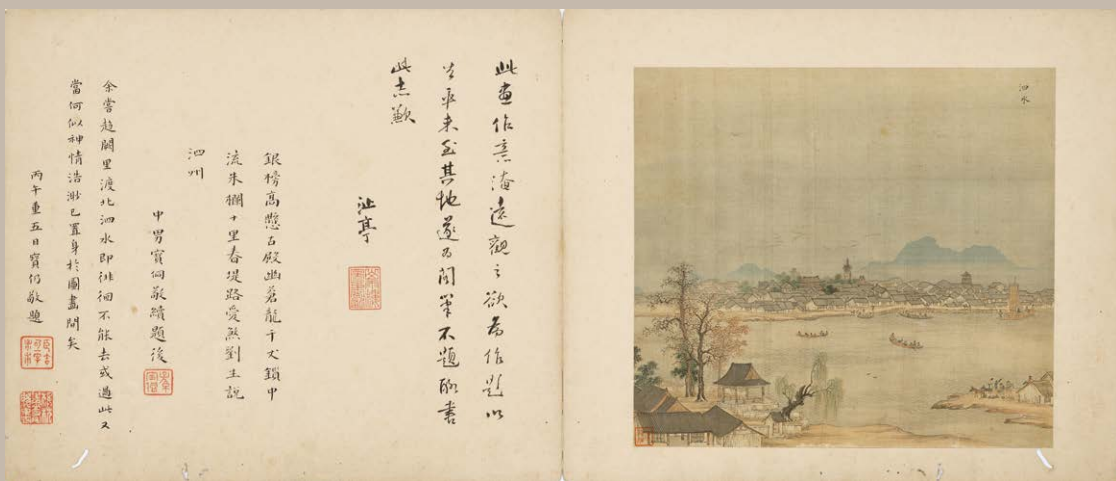 泗水
此畫作意淹遠觀之欲為作題以
生平未至其地遂為閣筆不題聊書
此志歉
沚亭
銀榜高懸古殿幽蒼龍千尺鎖中
流朱欄十里春堤路愛煞劉生説
泗州
中男寶侗敬續題後
余嘗趨闕里渡北泗水即徘徊不能去或過此又
當何似神情浩渺已置身於圖畫間矣
丙午重五日寶仍敬題